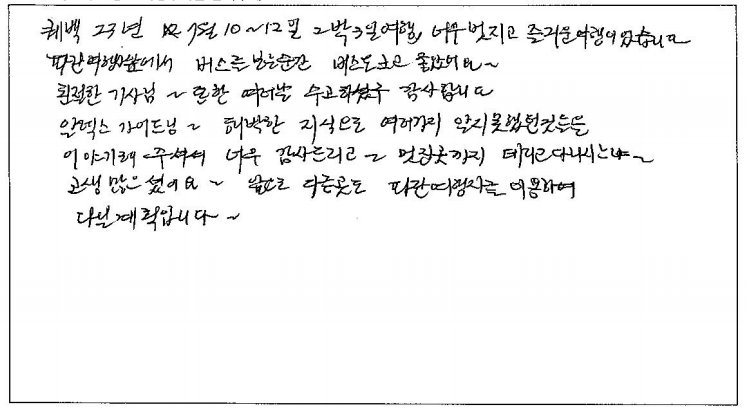 퀘백 23년 7월 10~12일 2박3일여행, 너무 멋지고 즐거운여행이었습니다
파란여행사앞에서 버스를 보는순간 버스도 크고 좋았어요~
친절한 기사님 ~ 또한 여러날 수고하셨구 감사합니다
알렉스 가이드님 ~ 해박한 지식으로 여러가지 알지못했던것들을
이야기해 주셔서 너무 감사드리고 ~ 멋진곳까지 데리고다니시느냐~
고생 많으셨어요 ~ 앞으로 다른곳도 파란여행사를 이용하여
다닐계획입니다 ~